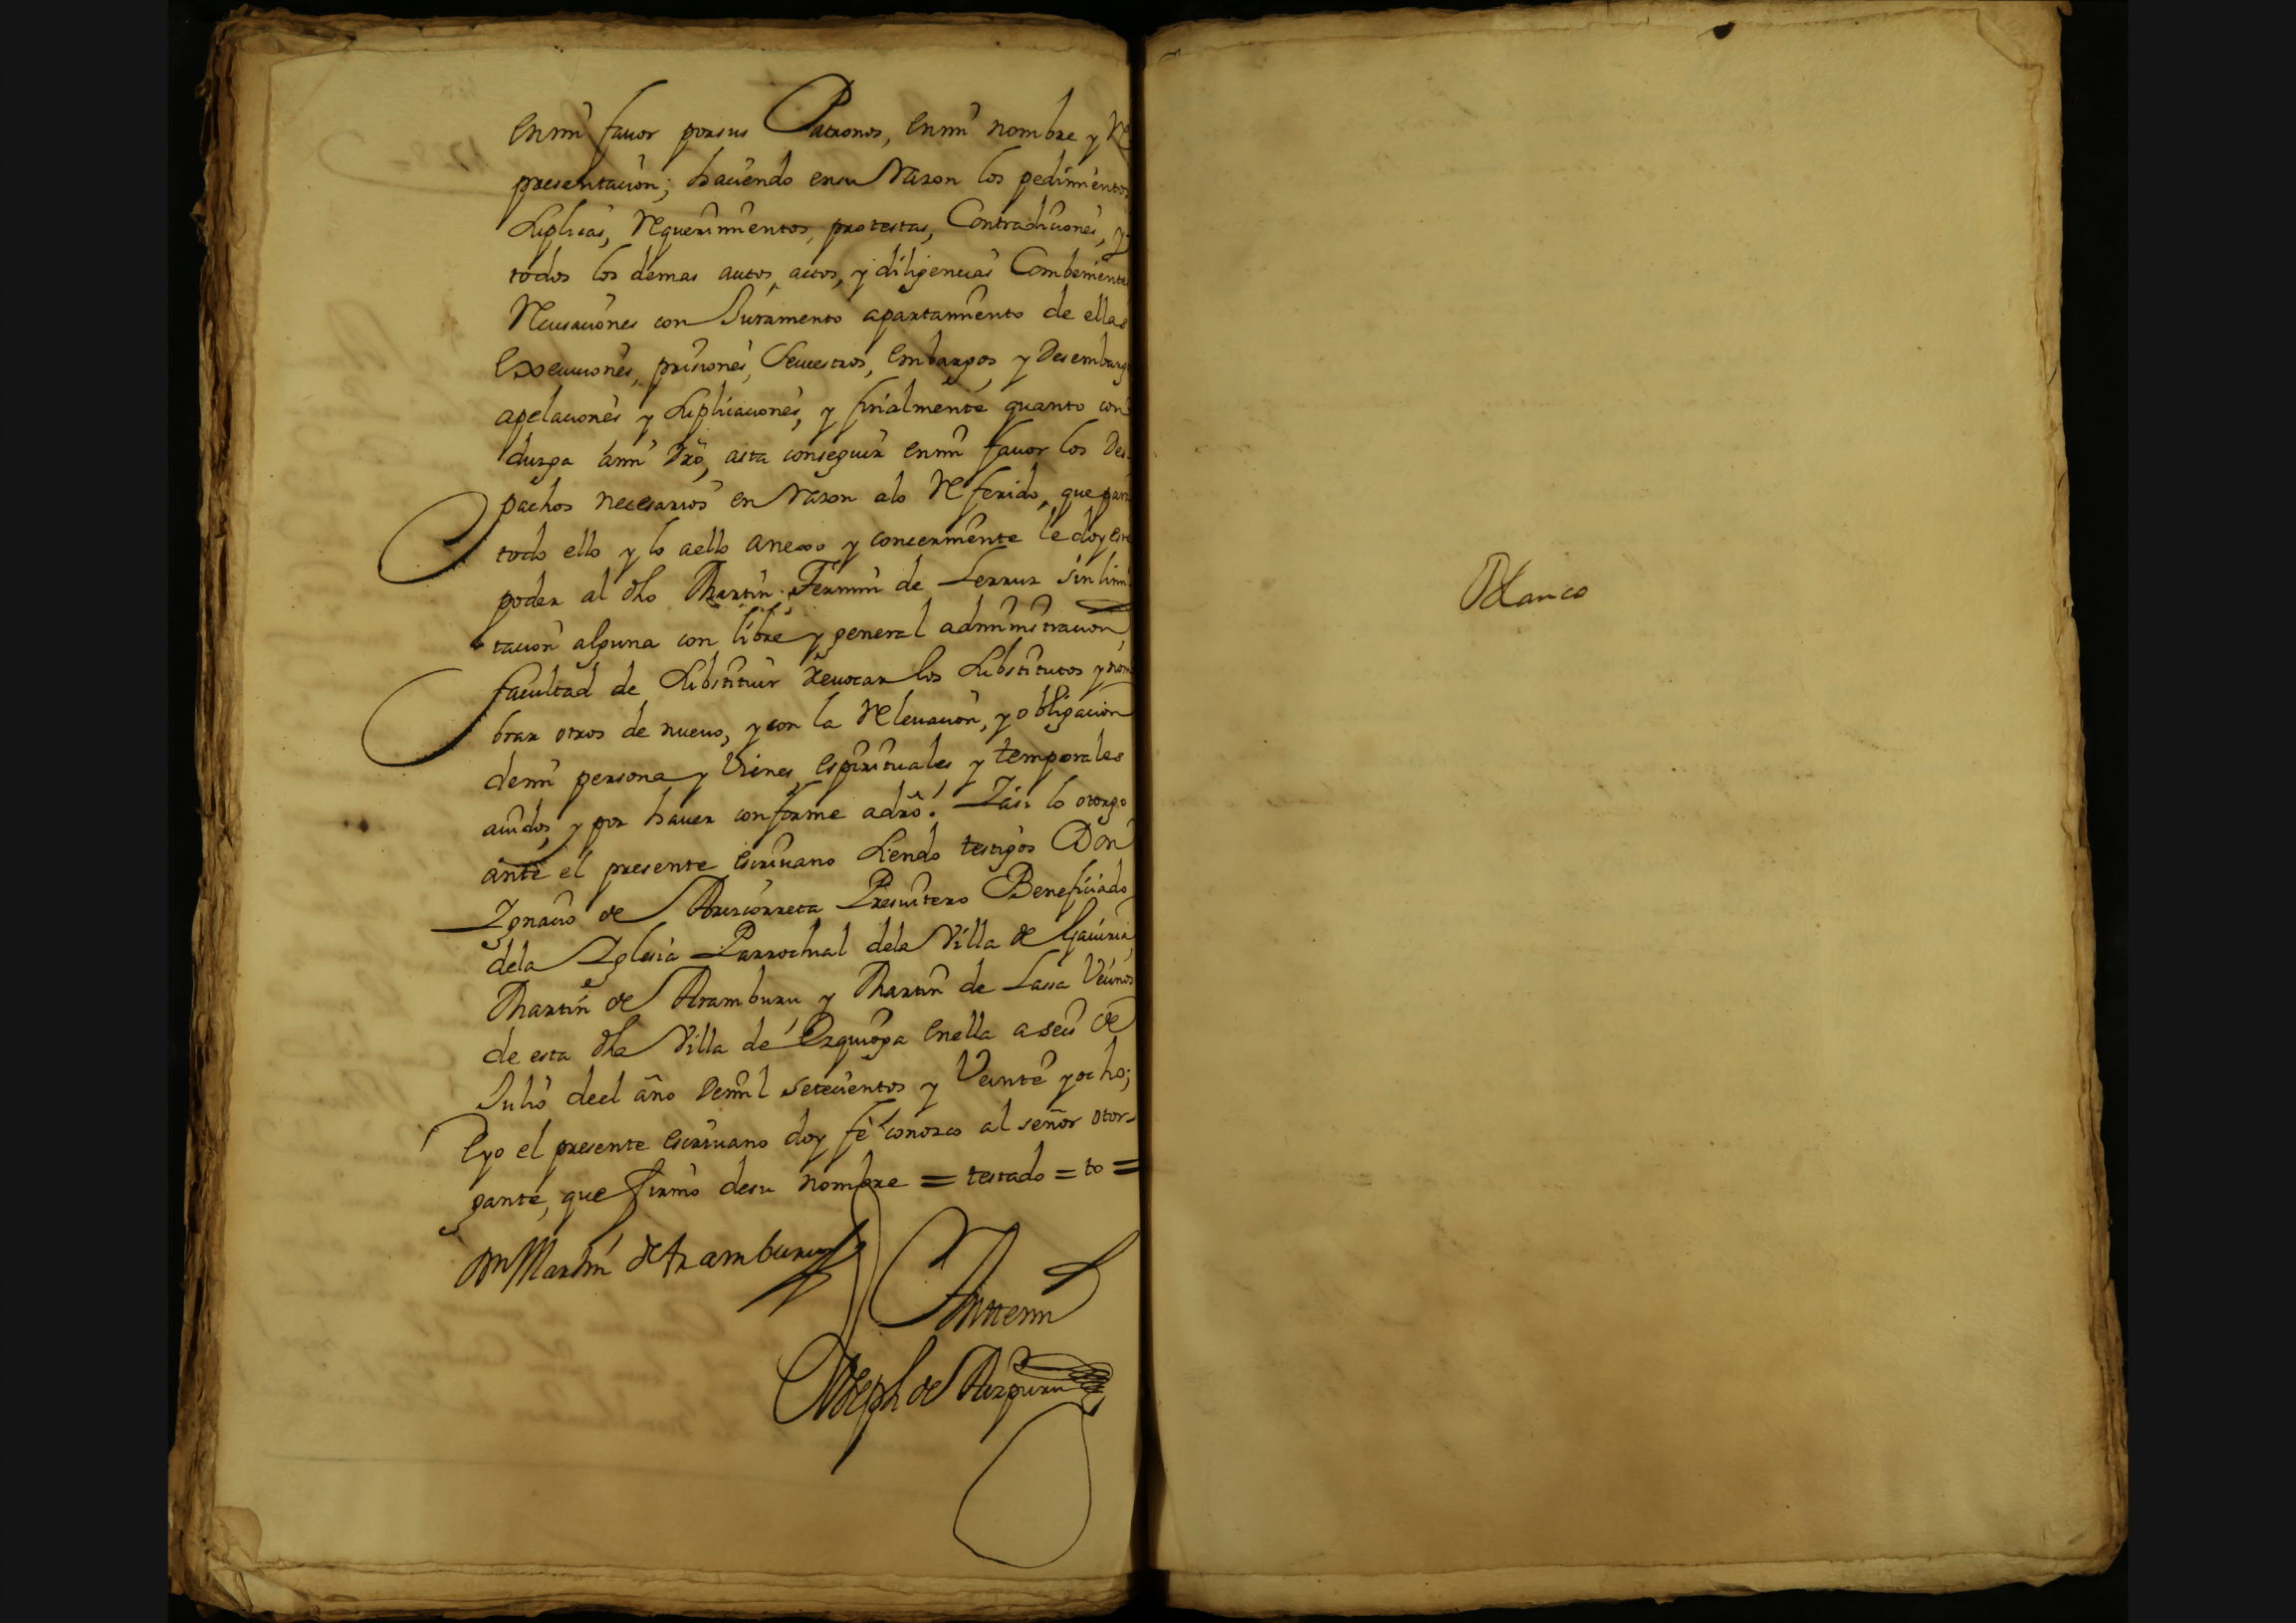 enmi fauor porsus Patronos, enmi nombre y Re
presentacion; haciendo ensu Razon los pedimientos
Suplicas, Requerimientos, protestas, Contradiciones, y
todos los demas autos, actos, y diligencias Combeniente
Recusaciones con Juramento apartamiento de ellas
Execuciones, prisiones, Secuestros, embargos, y Desembarg
apelaciones y Suplicaciones, y finalmente quanto con
duzga ami dro, asta conseguir enmi fauor los Des
pachos necesarios en Razon alo Referido, que para
todo ello y lo aello anexo y concerniente le doy este
poder al dho Martin Fermin de Lerruz sin limi
tacion alguna con libre y general administracion
facultad de Substituir reuocar los Substitutos y nom
brar otros de nueuo, y con la Releuacion, y obligacion
demi persona y Vienes espirituales y temporales
auidos, y por hauer conforme adro. Iasi lo otorgo
ante el presente escriuano Siendo testigos Don
Ignacio de Ariscorreta Presuitero Beneficiado
dela Iglesia Parrochial dela Villa de Gauiria,
Martin de Aramburu y Martin de Lasa Vecinos
de esta dha Villa de Ezquioga enella a seis de
Julio deel año demil setecientos y Veinte y ocho;
Eyo el presente escriuano doy fe conozco al señor otor-
gante, que firmo desu nombre = testado = to =
Dn Martin de Aramburu
Antemi
Joseph de Aizpuru
Blanco